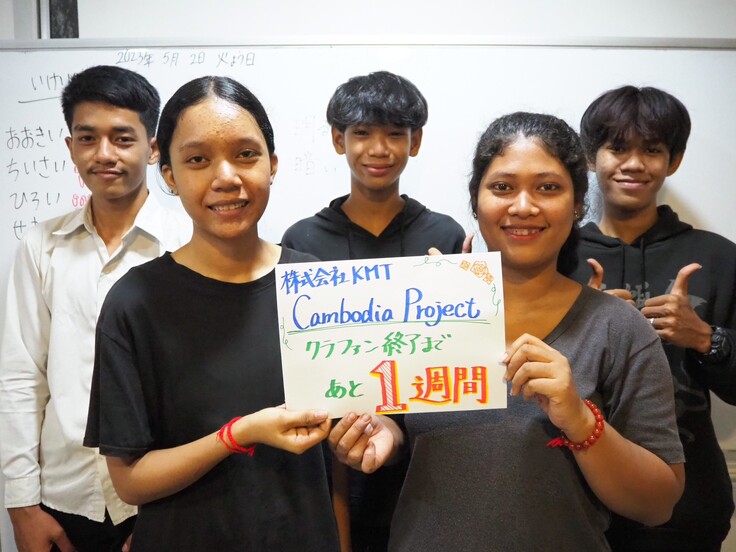 2023年 5月 2日 火よう日
おおきい
ちいさい
ひろい
株式会社KMT
Cambodia Project
クラファン終了まで
あと1週間